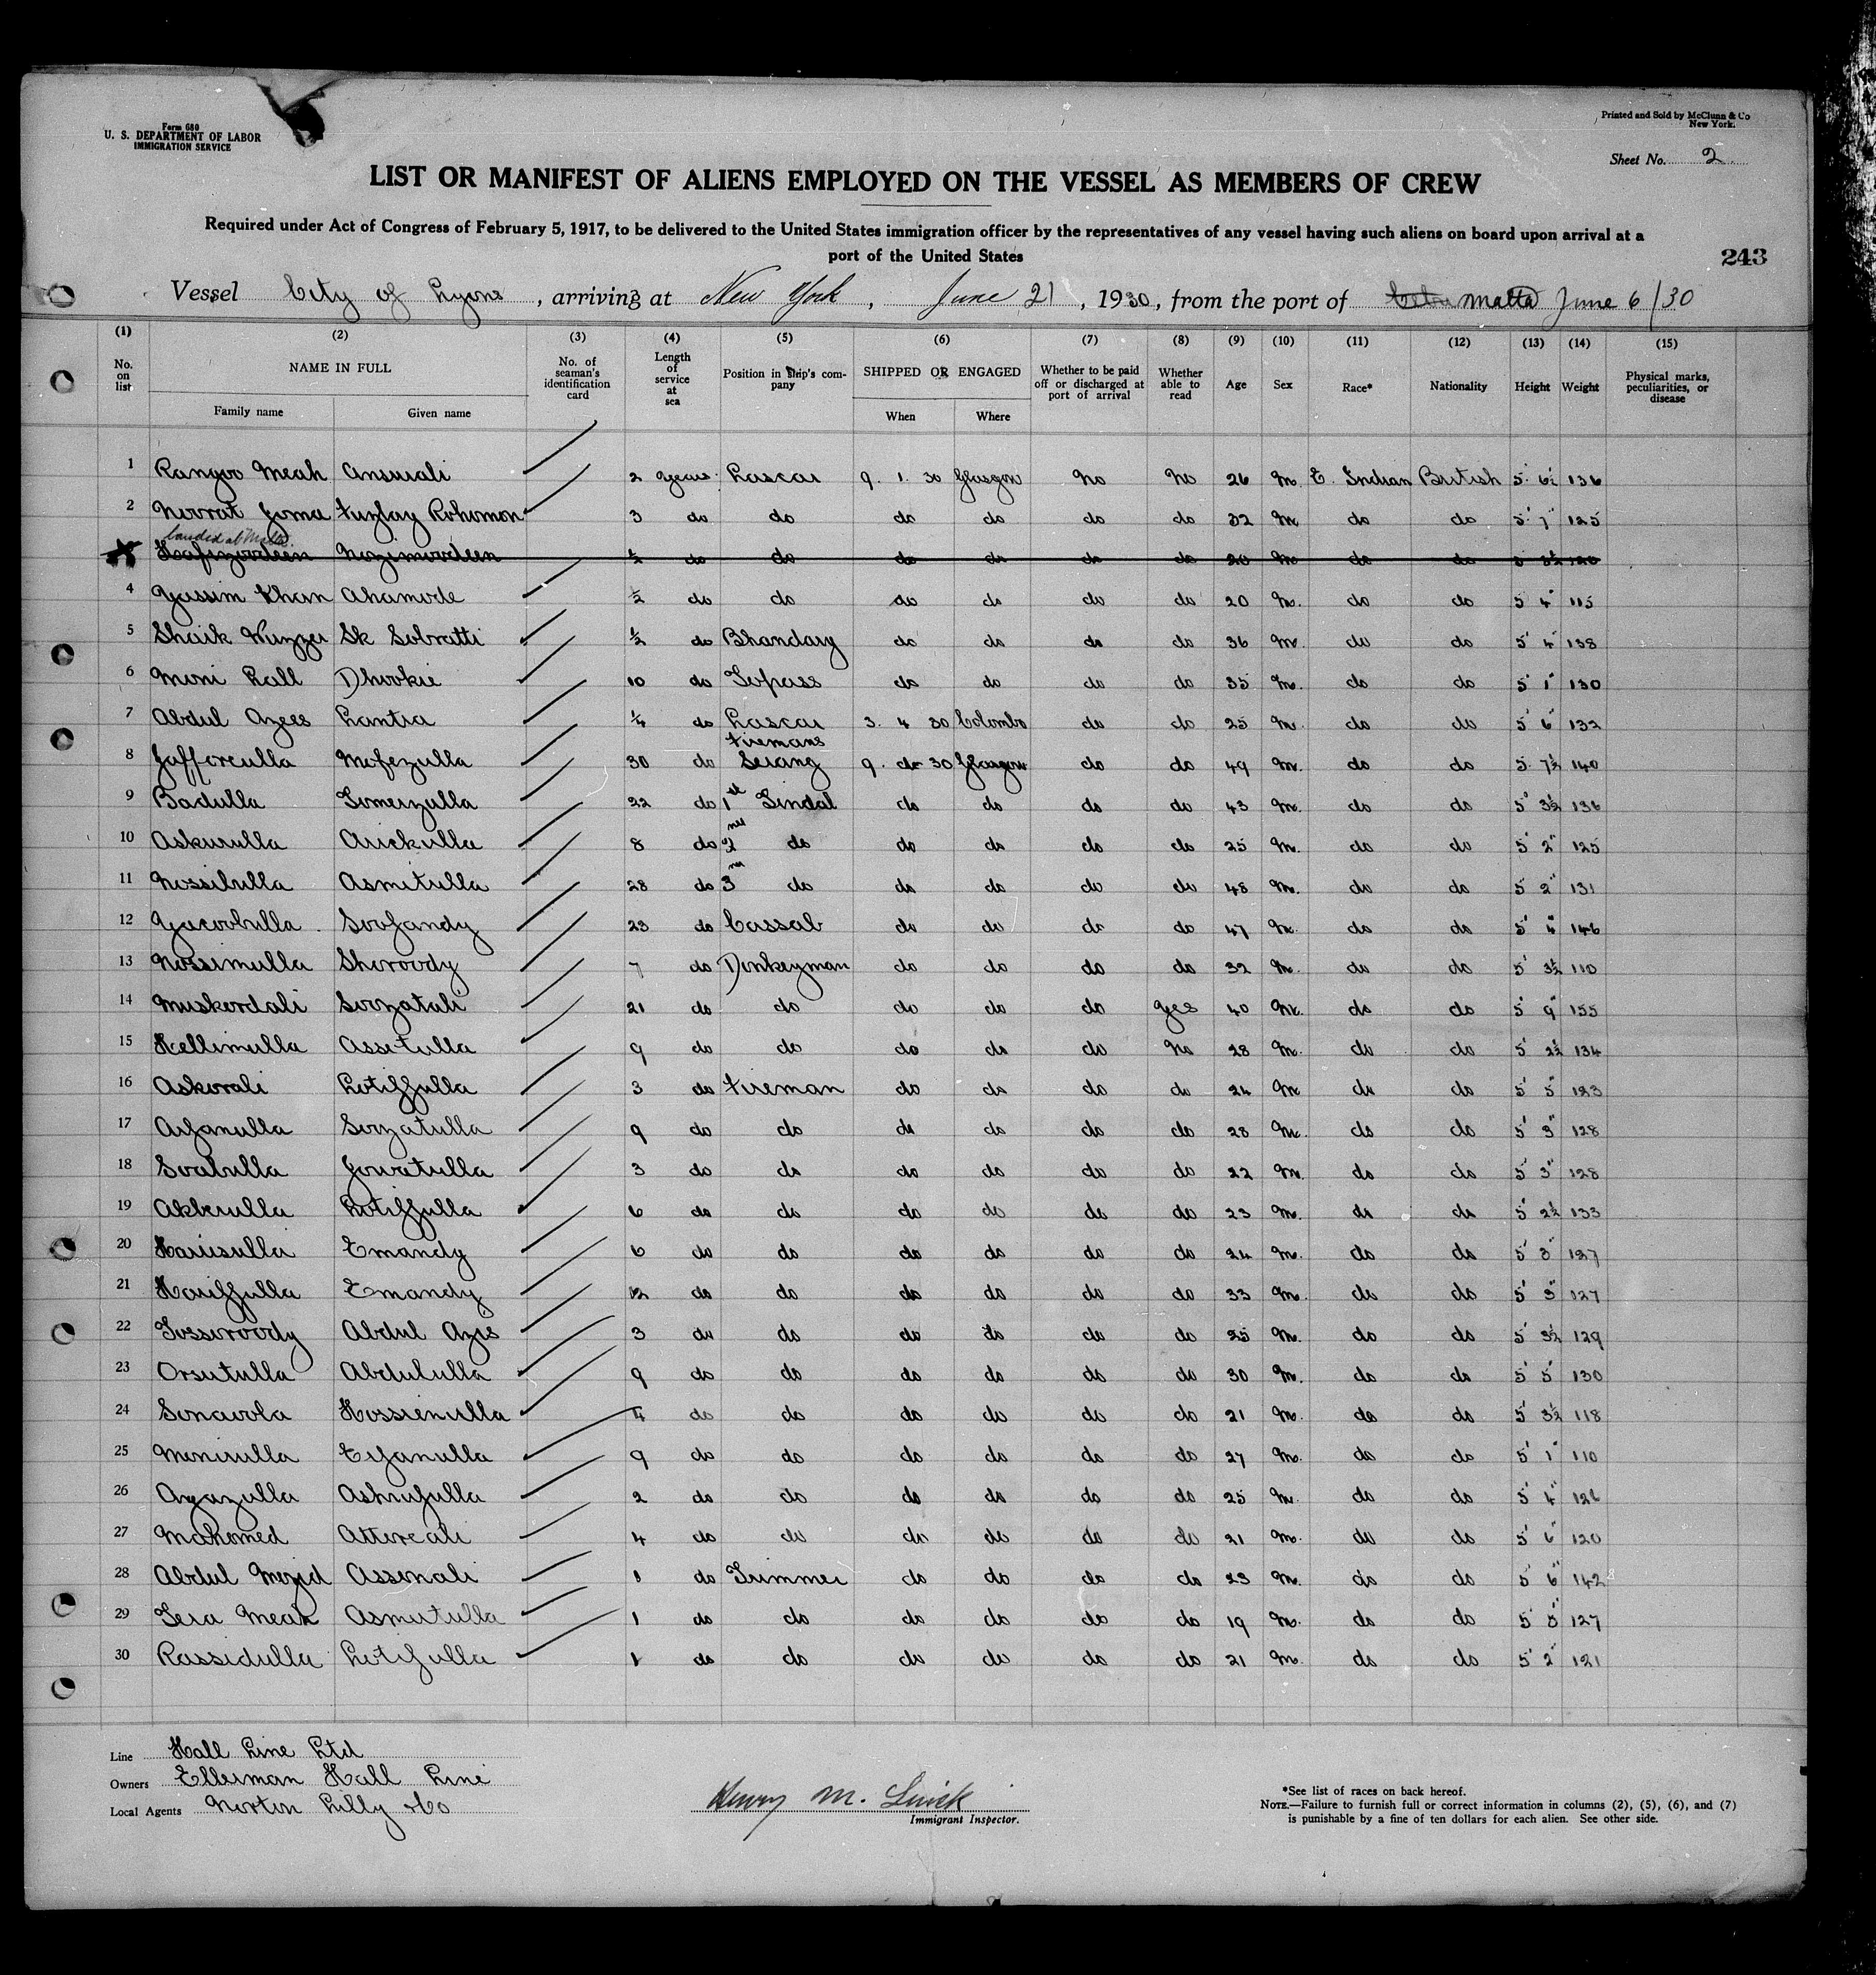 Form 680
U. S. DEPARTMENT OF LABOR
IMMIGRATION SERVICE
Printed and Sold by McClunn & Co
New York.
Sheet No. 2
LIST OR MANIFEST OF ALIENS EMPLOYED ON THE VESSEL AS MEMBERS OF CREW
Required under Act of Congress of February 5, 1917, to be delivered to the United States immigration officer by the representatives of any vessel having such aliens on board upon arrival at a
port of the United States
243
Vessel City of Lyons, arriving at New York, June 21, 1930, from the port of Cebu Malta June 6/30
(1) (2) (3) (4) (5) (6) (7) (8) (9) (10) (11) (12) (13) (14) (15)
No. on list NAME IN FULL No. of seaman's identification card Length of service at sea Position in ship's company SHIPPED OR ENGAGED Whether to be paid off or discharged at port of arrival Whether able to read Age Sex Race* Nationality Height Weight Physical marks, peculiarities, or disease
Family name Given name When Where
1 Rangoo Meah Ansurali 2 years Lascar 9. 1. 30 Glasgow No No 26 M. E. Indian British 5' 6½ 136
2 Norrat Joma Fuzlay Rohomon 3 do do do do do do 32 M do do 5' 7" 125
landed at Malta
Hafizoodeen Nozimoodeen ½ do do do do do do 20 M do do 5 3½ 120
4 Yassim Khan Ahamode ½ do do do do do do 20 M. do do 5 4" 115
5 Shaik Wuzzer Sk Sobratti ½ do Bhandary do do do do 36 M. do do 5' 4" 138
6 Moni Lall Dhookie 10 do Topass do do do do 35 M. do do 5' 1" 130
7 Abdul Azees Lantra ¼ do Lascar 3. 4 30 Colombo do do 25 M. do do 5' 6" 132
8 Jafforculla Mofezulla 30 do Firemans Serang 9. do 30 Glasgow do do 49 M. do do 5. 7½ 140
9 Badulla Tomerzulla 22 do 1st Tindal do do do do 43 M. do do 5' 3½ 136
10 Askurulla Arickulla 8 do 2nd do do do do do 25 M. do do 5' 2" 125
11 Nossibulla Asmitulla 28 do 3rd do do do do do 48 M. do do 5 2" 131
12 Yacoobulla Soofandy 23 do Cassab do do do do 47 M. do do 5' 4" 146
13 Nossimulla Shoroody 7 do Donkeyman do do do do 32 M. do do 5' 3½ 110
14 Muskordali Soozatali 21 do do do do do yes 40 M. do do 5' 9" 155
15 Kellimulla Assetulla 9 do do do do do No 28 M. do do 5' 2½ 134
16 Askorali Lotiffulla 3 do Fireman do do do do 24 M do do 5' 5" 123
17 Arfanulla Soozatulla 9 do do do do do do 28 M. do do 5' 3" 128
18 Soabulla Jovatulla 3 do do do do do do 22 M. do do 5' 3" 128
19 Akberulla Lotiffulla 6 do do do do do do 23 M. do do 5' 2½ 133
20 Harisulla Emandy 6 do do do do do do 24 M. do do 5' 3" 127
21 Hariffulla Emandy 12 do do do do do do 33 M. do do 5' 3" 127
22 Tosseroody Abdul Azis 3 do do do do do do 25 M. do do 5' 3½ 129
23 Orsutulla Abdululla 9 do do do do do do 30 M. do do 5' 5" 130
24 Sonavola Hossienulla 4 do do do do do do 21 M. do do 5' 3½ 118
25 Menirulla Eyanulla 9 do do do do do do 27 M. do do 5' 1" 110
26 Ayazulla Ashrufulla 2 do do do do do do 25 M. do do 5' 4" 126
27 Mahomed Attorcali 4 do do do do do do 21 M. do do 5' 6" 120
28 Abdul Mozid Assenali 1 do Trimmer do do do do 23 M. do do 5 6" 142
29 Tera Meah Asmutulla 1 do do do do do do 19 M. do do 5 5" 127
30 Rassidulla Lotifulla 1 do do do do do do 21 M. do do 5' 2" 121
Line Hall Line Ltd
Owners Ellerman Hall Line
Local Agents Norton Lilly & Co
Henry M.
Immigrant Inspector.
*See list of races on back hereof.
NOTE.—Failure to furnish full or correct information in columns (2), (5), (6), and (7)
is punishable by a fine of ten dollars for each alien. See other side.